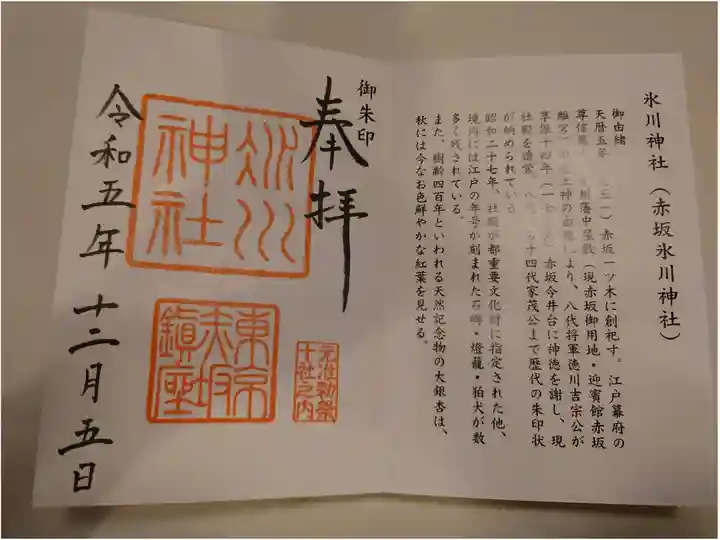 氷川神社(赤坂氷川神社)
御由緒
天暦五年 赤坂一ツ木に創祀す。江戸幕府の
尊信 藩中屋敷(現赤坂御用地・迎賓館赤坂
離宮) 神の により、八代将軍徳川吉宗公が
享保十四年(一 )赤坂今井台に神徳を謝し、現
社殿を造営 八 十四代家茂公まで歴代の朱印状
が納められている
昭和二十七年、社殿が都重要文化財に指定された他、
境内には江戸の年号が刻まれた石 ・燈籠・狛犬が数
多く残されている。
また、樹齢四百年といわれる天然記念物の大銀杏は、
秋には今なお色鮮やかな紅葉を見せる。
御朱印
奉拝
氷川
神社
東京
赤坂
鎮座
元准勅祭
十社之内
令和五年十二月五日